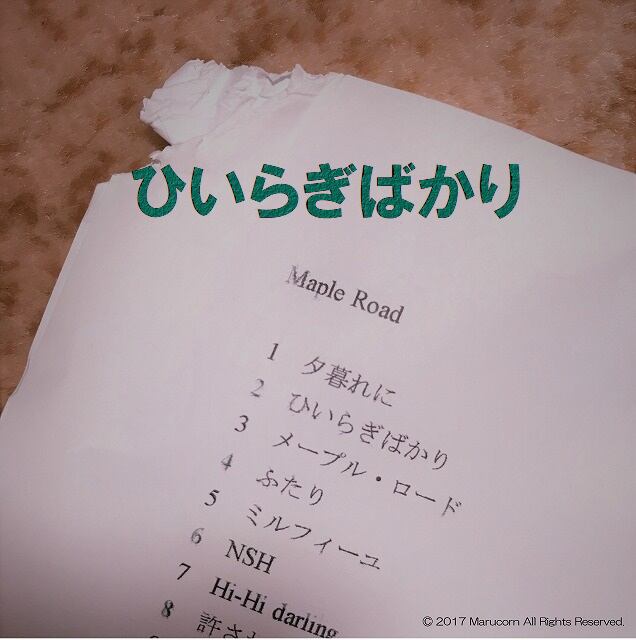 ひいらぎばかり
Maple Road
1 夕暮れに
2 ひいらぎばかり
3 メープル・ロード
4 ふたり
5 ミルフィーユ
6 NSH
7 Hi-Hi darling
8 許され
© 2017 Marucorn All Rights Reserved.